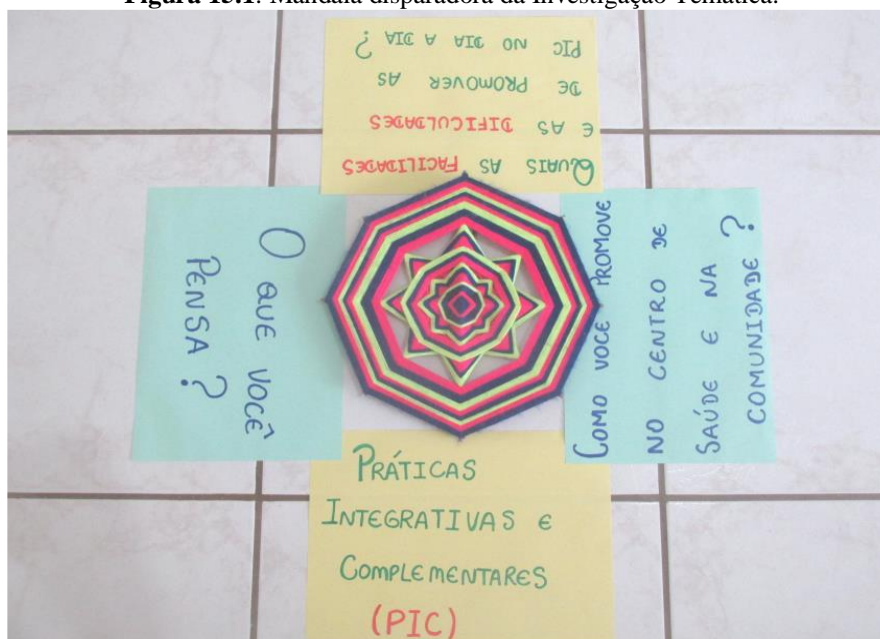 Figura 13.1: Mandala disparadora da Investigação Temática.
QUAIS AS FACILIDADES
E AS DIFICULDADES
DE PROMOVER AS
PIC NO DIA A DIA ?
O QUE VOCÊ
PENSA ?
COMO VOCÊ PROMOVE
NO CENTRO DE
SAÚDE E NA
COMUNIDADE ?
PRÁTICAS
INTEGRATIVAS E
COMPLEMENTARES
(PIC)